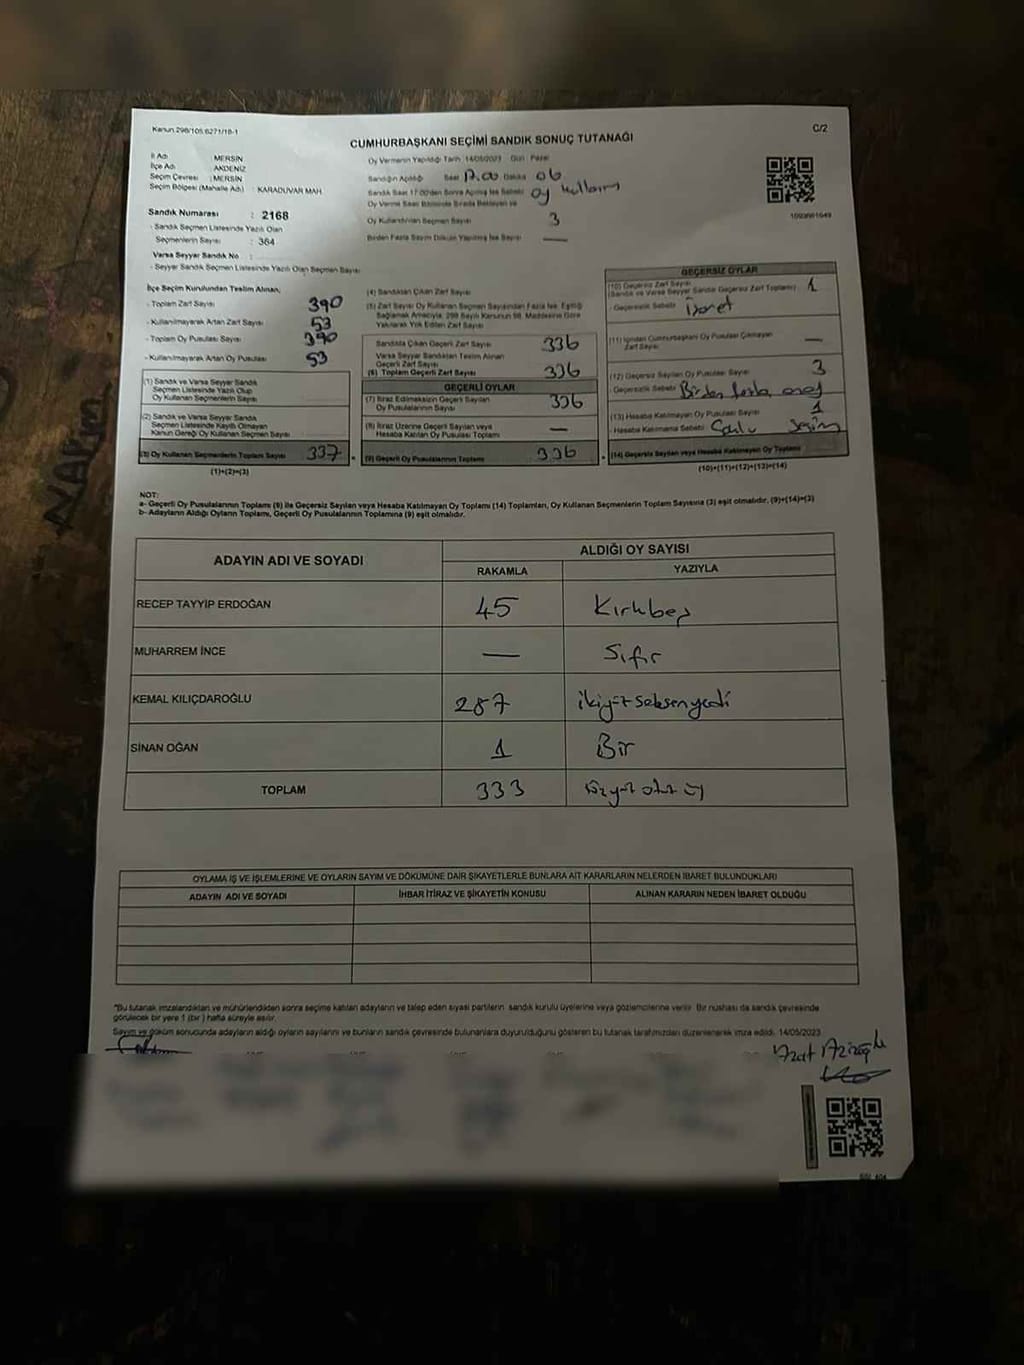 Kanun 298/105.6271/18-1
C/2
CUMHURBAŞKANI SEÇİMİ SANDIK SONUÇ TUTANAĞI
İl Adı : MERSİN
İlçe Adı : AKDENİZ
Seçim Çevresi : MERSİN
Seçim Bölgesi (Mahalle Adı) : KARADUVAR MAH.
Sandık Numarası : 2168
- Sandık Seçmen Listesinde Yazılı Olan
Seçmenlerin Sayısı : 364
Varsa Seyyar Sandık No :
- Seyyar Sandık Seçmen Listesinde Yazılı Olan Seçmen Sayısı
Oy Vermenin Yapıldığı Tarih 14/05/2023 Gün : Pazar
Sandığın Açıldığı Saat Dakika 06
Sandık Saat 17:00'den Sonra Açılmış İse Sebebi oy kullanım
Oy Verme Saati Bitiminde Sırada Bekleyen ve
Oy Kullandırılan Seçmen Sayısı 3
Birden Fazla Sayım Döküm Yapılmış İse Sayısı —
İlçe Seçim Kurulundan Teslim Alınan;
- Toplam Zarf Sayısı 390
- Kullanılmayarak Artan Zarf Sayısı 53
- Toplam Oy Pusulası Sayısı 390
- Kullanılmayarak Artan Oy Pusulası 53
(1) Sandık ve Varsa Seyyar Sandık
Seçmen Listesinde Yazılı Olup
Oy Kullanan Seçmenlerin Sayısı
(2) Sandık ve Varsa Seyyar Sandık
Seçmen Listesinde Kayıtlı Olmayan
Kanun Gereği Oy Kullanan Seçmen Sayısı
(3) Oy Kullanan Seçmenlerin Toplam Sayısı 337
(1)+(2)=(3)
(4) Sandıktan Çıkan Zarf Sayısı
(5) Zarf Sayısı Oy Kullanan Seçmen Sayısından Fazla İse, Eşitliği
Sağlamak Amacıyla, 298 Sayılı Kanunun 98. Maddesine Göre
Yakılarak Yok Edilen Zarf Sayısı
Sandıkta Çıkan Geçerli Zarf Sayısı 336
Varsa Seyyar Sandıktan Teslim Alınan
Geçerli Zarf Sayısı
(6) Toplam Geçerli Zarf Sayısı 336
GEÇERLİ OYLAR
(7) İtiraz Edilmeksizin Geçerli Sayılan
Oy Pusulalarının Sayısı 336
(8) İtiraz Üzerine Geçerli Sayılan veya
Hesaba Katılan Oy Pusulası Toplamı —
(9) Geçerli Oy Pusulalarının Toplamı 336
GEÇERSİZ OYLAR
(10) Geçersiz Zarf Sayısı
(Sandık ve Varsa Seyyar Sandık Geçersiz Zarf Toplamı) : 1
- Geçersizlik Sebebi: İşaret
(11) İçinden Cumhurbaşkanı Oy Pusulası Çıkmayan
Zarf Sayısı —
(12) Geçersiz Sayılan Oy Pusulası Sayısı 3
- Geçersizlik Sebebi: Birden fazla
(13) Hesaba Katılmayan Oy Pusulası Sayısı 1
- Hesaba Katılmama Sebebi:
(14) Geçersiz Sayılan veya Hesaba Katılmayan Oy Toplamı
(10)+(11)+(12)+(13)=(14)
NOT:
a- Geçerli Oy Pusulalarının Toplamı (9) ile Geçersiz Sayılan veya Hesaba Katılmayan Oy Toplamı (14) Toplamları, Oy Kullanan Seçmenlerin Toplam Sayısına (3) eşit olmalıdır. (9)+(14)=(3)
b- Adayların Aldığı Oyların Toplamı, Geçerli Oy Pusulalarının Toplamına (9) eşit olmalıdır.
ADAYIN ADI VE SOYADI
ALDIĞI OY SAYISI
RAKAMLA YAZIYLA
RECEP TAYYİP ERDOĞAN 45 Kırkbeş
MUHARREM İNCE — Sıfır
KEMAL KILIÇDAROĞLU 287 ikiyüzseksenyedi
SİNAN OĞAN 1 Bir
TOPLAM 333 üçyüz otuz üç
OYLAMA İŞ VE İŞLEMLERİNE VE OYLARIN SAYIM VE DÖKÜMÜNE DAİR ŞİKAYETLERLE BUNLARA AİT KARARLARIN NELERDEN İBARET BULUNDUKLARI
ADAYIN ADI VE SOYADI İHBAR İTİRAZ VE ŞİKAYETİN KONUSU ALINAN KARARIN NEDEN İBARET OLDUĞU
*Bu tutanak imzalandıktan ve mühürlendikten sonra seçime katılan adayların ve talep eden siyasi partilerin sandık kurulu üyelerine veya gözlemcilerine verilir. Bir nüshası da sandık çevresinde
görülecek bir yere 1 (bir) hafta süreyle asılır.
Sayım ve döküm sonucunda adayların aldığı oyların sayılarını ve bunların sandık çevresinde bulunanlara duyurulduğunu gösteren bu tutanak tarafımızdan düzenlenerek imza edildi. 14/05/2023